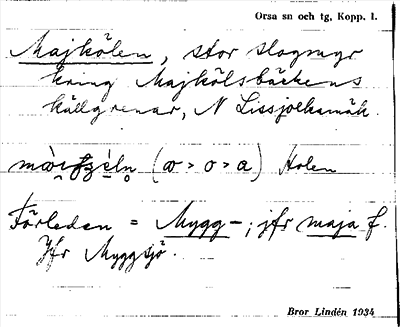 Orsa sn och tg, Kopp. l.
Majkölen, stor slogmyr
kring Majkölsbäckens
källgrenar, N Lissjolksmäk.
(æ > o > a) Holen
Förleden = Mygg-; jfr maja f.
Jfr Myggsjö.
Bror Lindén 1934